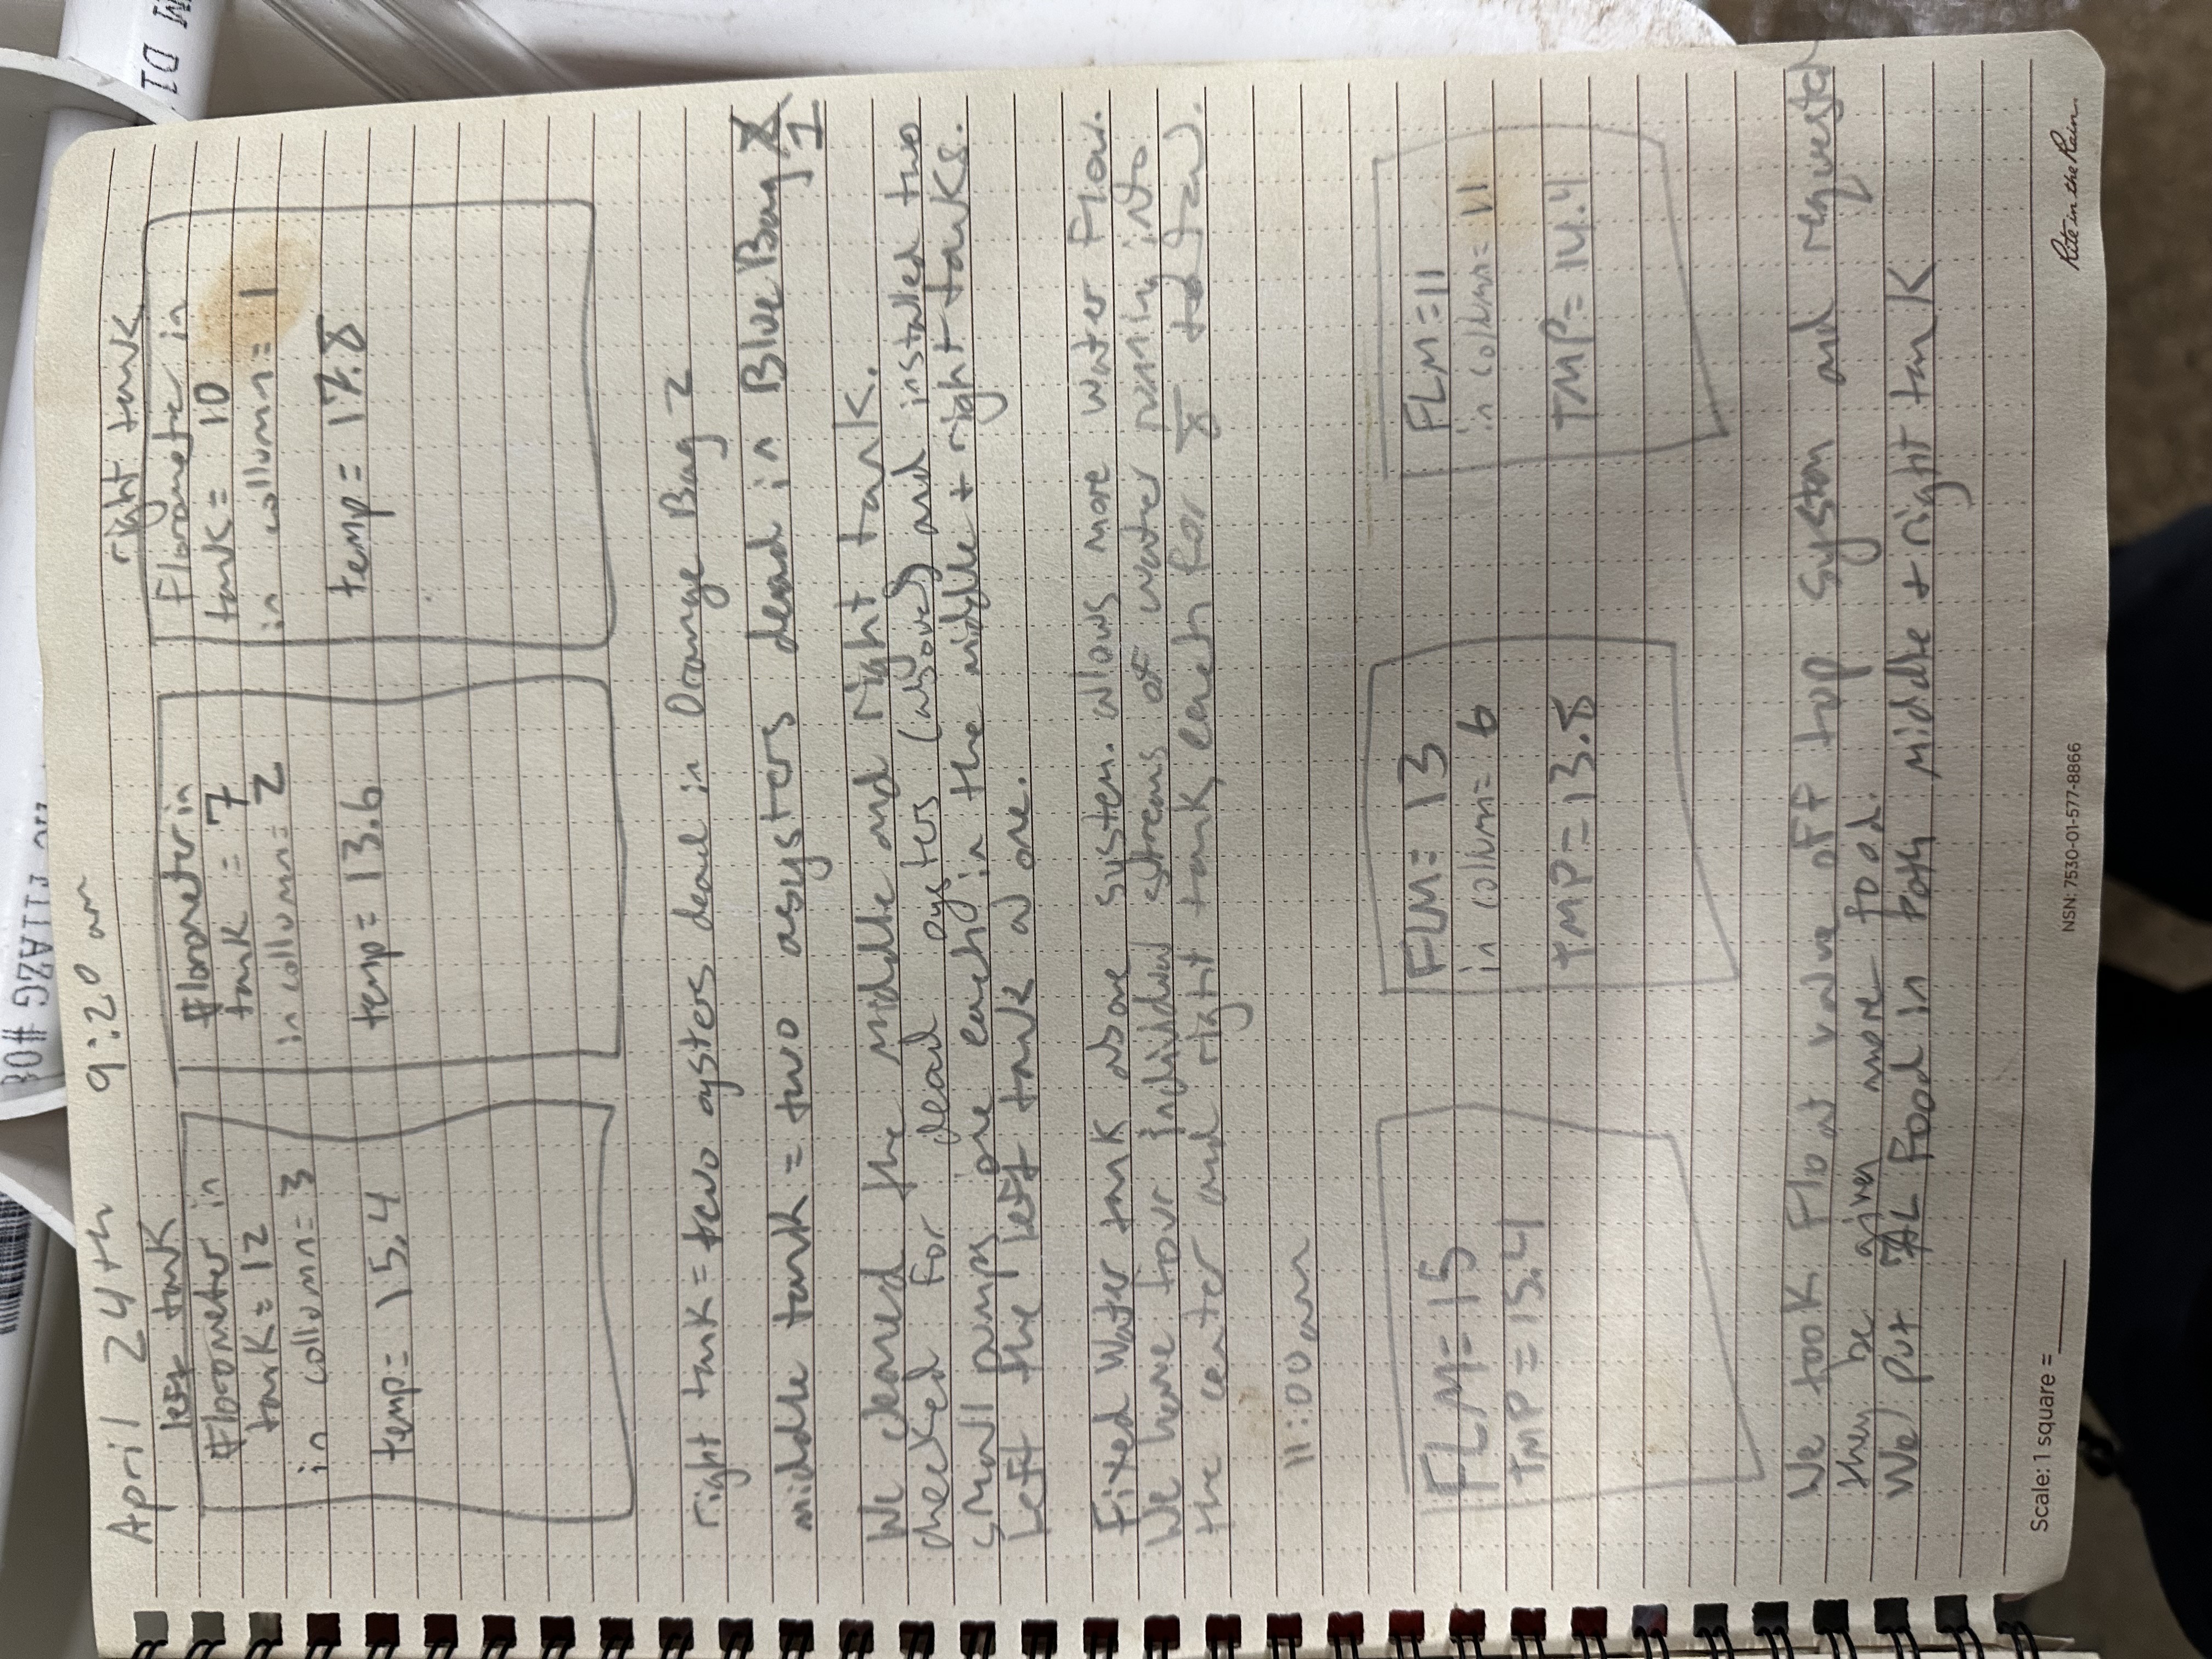 #03
D1
April 24th 9:20 am
left tank
Florometer in
tank= 12
in collumn= 3
temp= 15.4
Florometer in
tank = 7
in collumn= 2
temp= 13.6
right tank
Florometer in
tank= 10
in collumn= 1
temp= 17.8
right tank = two oysters dead in Orange Bag 2
middle tank = two oysters dead in Blue Bag
1
We cleaned the middle and right tank.
checked for dead oysters (above) and installed two
small pumps one each in the middle + right tanks.
Left the left tank alone.
Fixed Water tank above system. allows more water Flow.
We have four individual streams of water running into
the center and right tank, each for 8 total.
11:00am
FLM= 15
TMP = 15.4
FLM= 13
in collumn= 6
TMP= 13.8
FLM=11
in collumn= 11
TMP= 14.4
We took Float valve off top system and requested
they be given more food.
We put Food in both middle + right tank
Scale: 1 square =
NSN: 7530-01-577-8866
Rite in the Rain